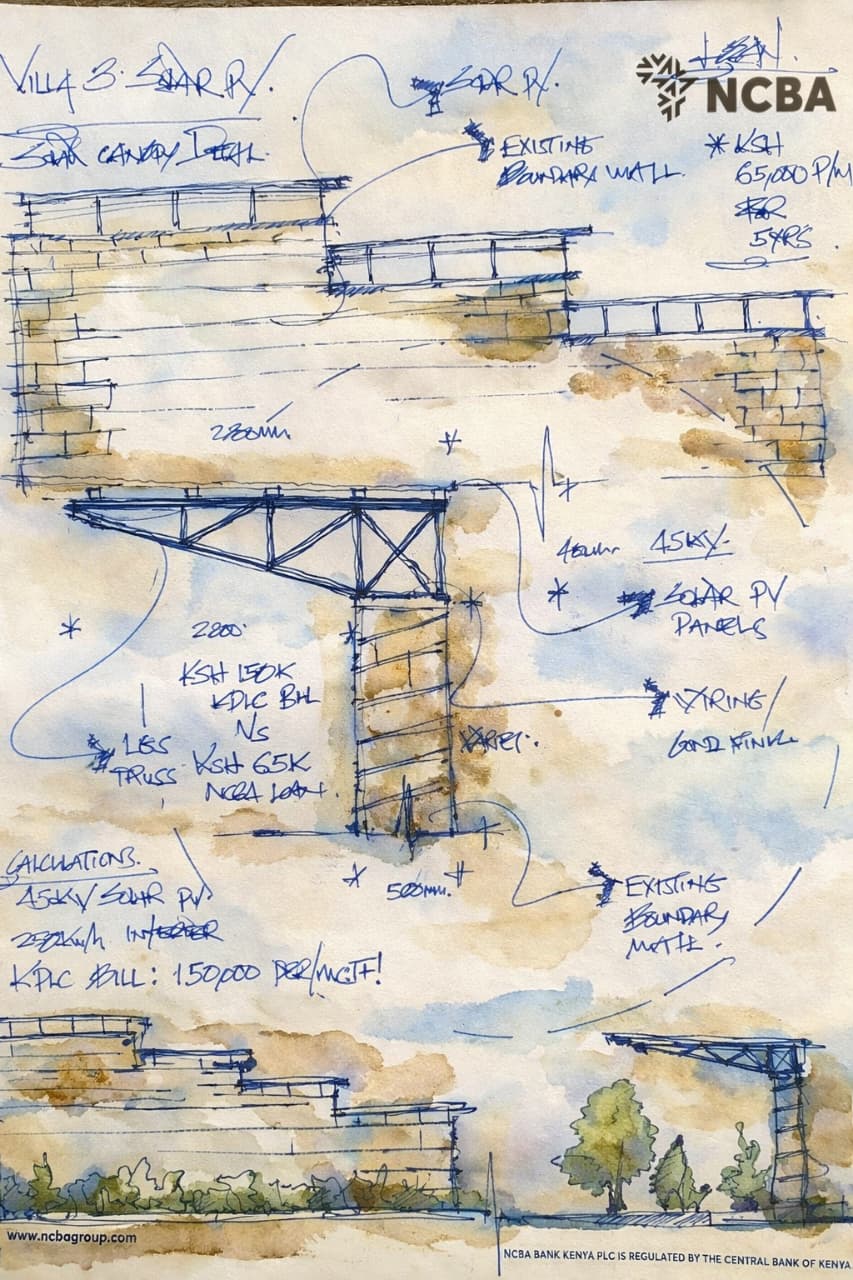 VILLA 3. SOLAR PV.
SOLAR CANOPY DETAIL.
SOLAR PV.
EXISTING
BOUNDARY WALL.
LOAN.
NCBA
* KSH
65,000 P/M
FOR
5YRS.
2800mm.
45KV.
SOLAR PV
PANELS
2800.
KSH 150K
KDLC BILL
VS
KSH 65K
NCBA LOAN.
TRUSS
500mm.
EXISTING
BOUNDARY
CALCULATIONS.
45KV SOLAR PV
KPLC BILL: 150,000
www.ncbagroup.com
NCBA BANK KENYA PLC IS REGULATED BY THE CENTRAL BANK OF KENYA